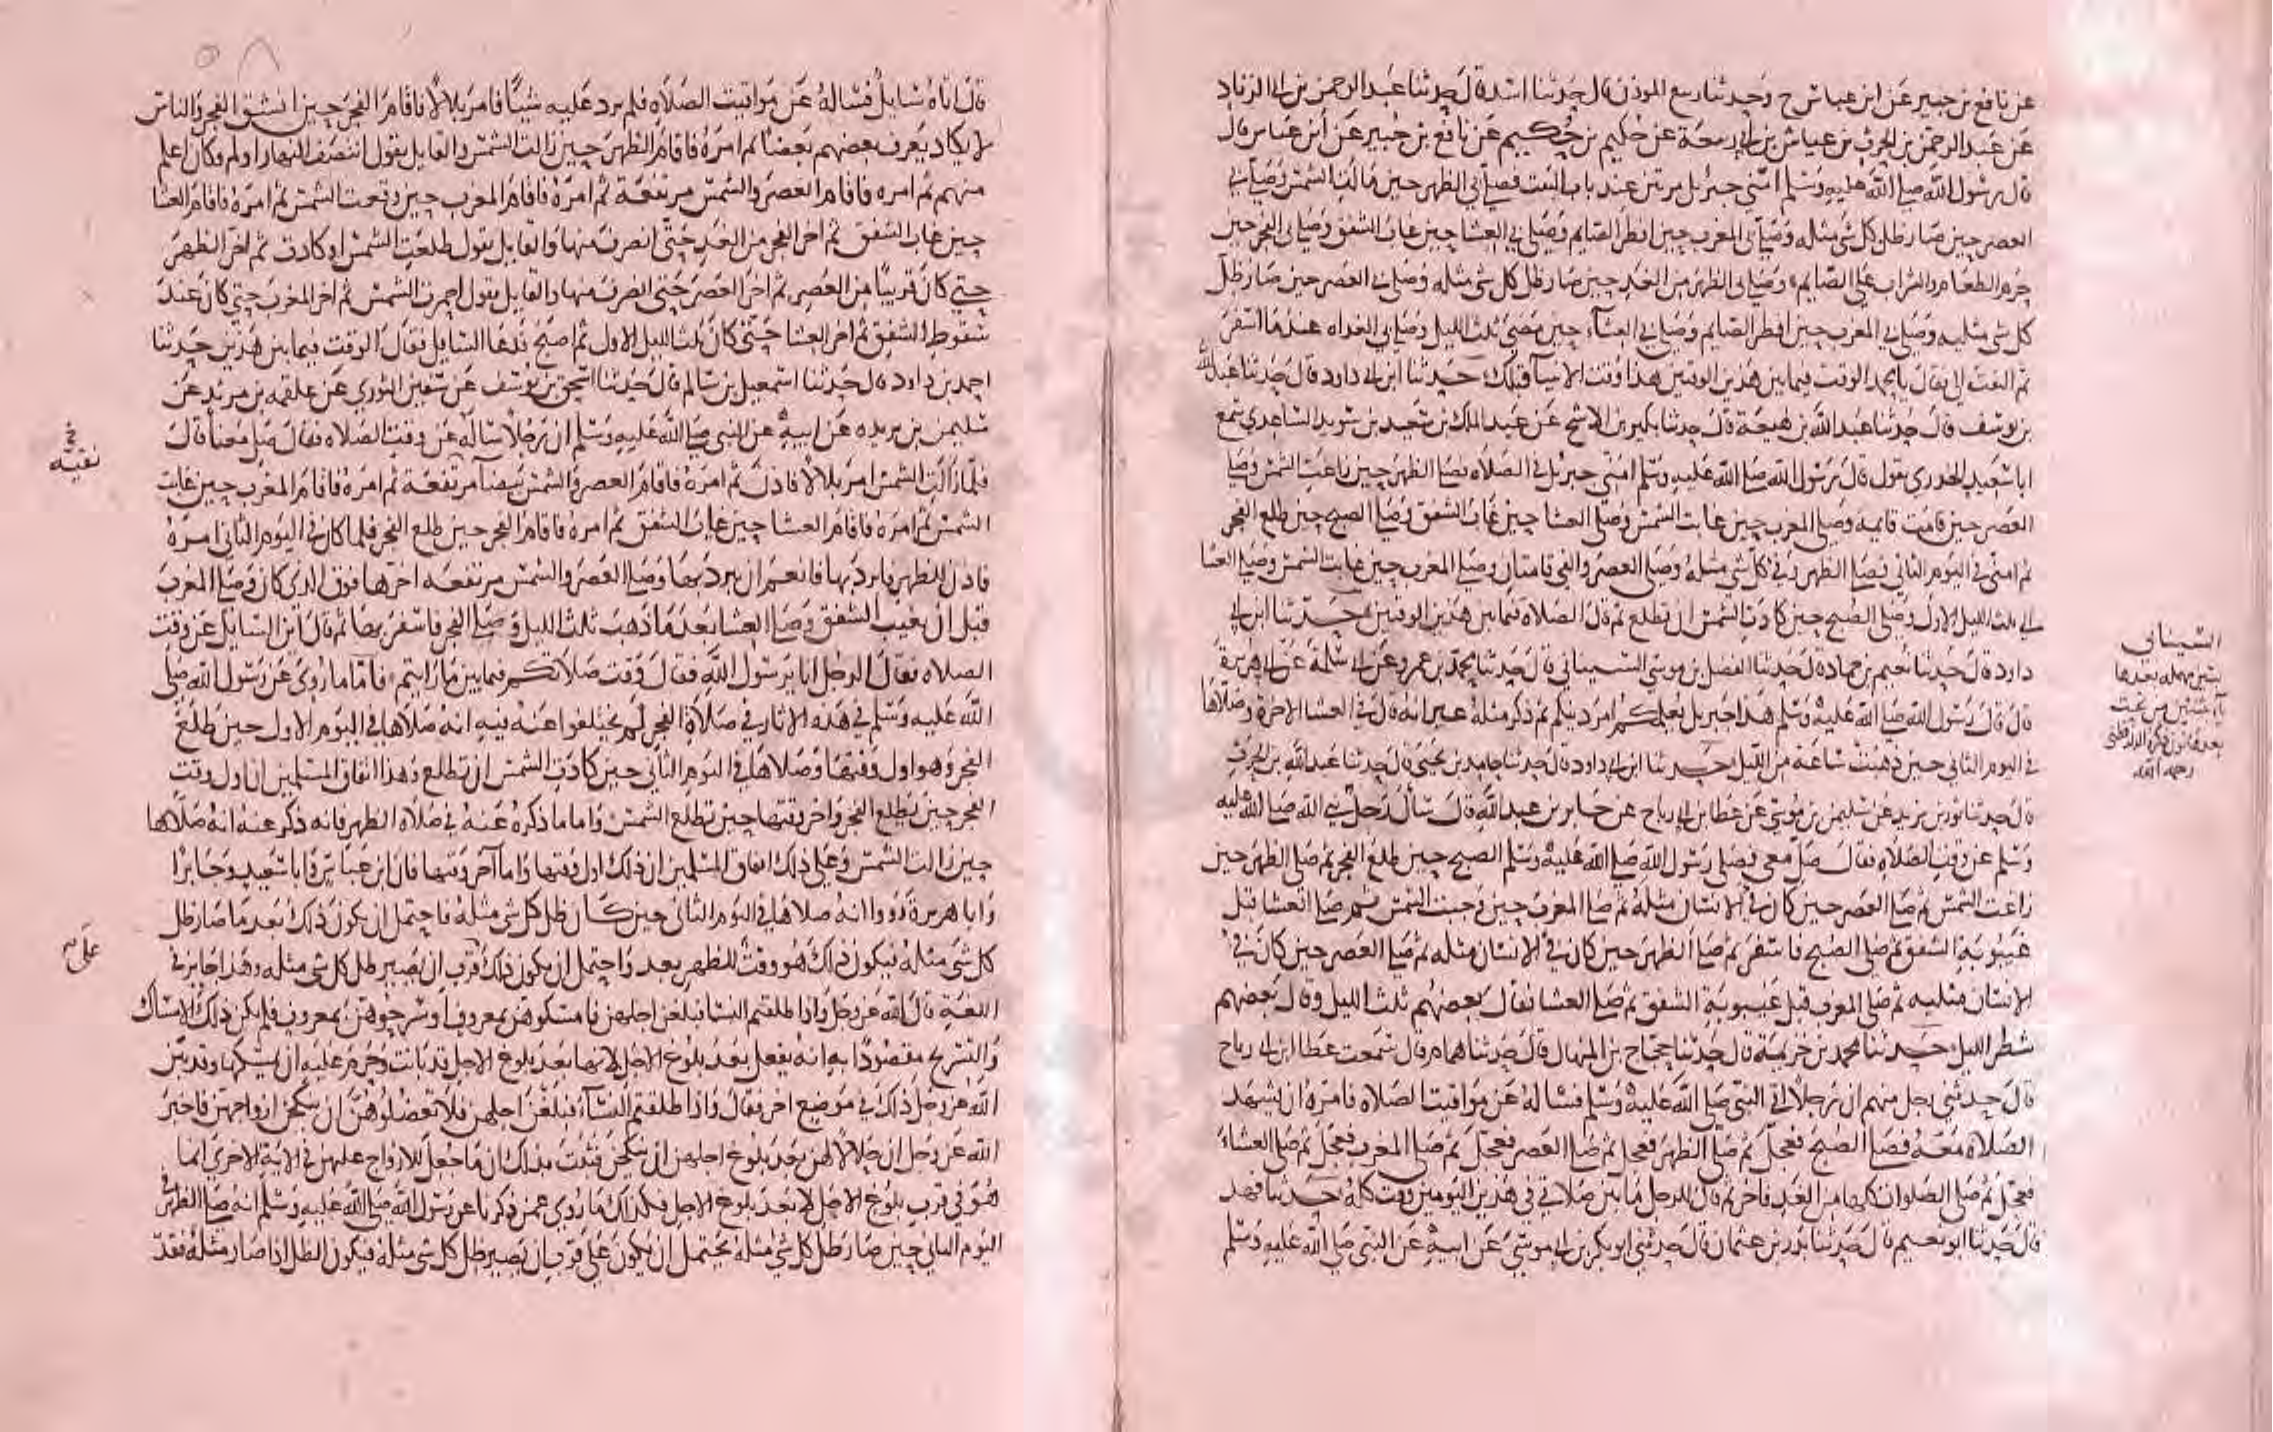 عن نافع بن جبير عن ابن عباس ح وحدثنا ربيع الموذن قال حدثنا اسد قال حدثنا عبد الرحمن بن ابي الزناد
عن عبد الرحمن بن الحرث بن عياش بن ابي ربيعة عن حكيم بن حكيم عن نافع بن جبير عن ابن عباس قال
قال رسول الله صلى الله عليه وسلم امني جبريل مرتين عند باب البيت فصلى بي الظهر حين مالت الشمس وصلى بي
العصر حين صار ظل كل شي مثله وصلى بي المغرب حين افطر الصايم وصلى بي العشا حين غاب الشفق وصلى بي الفجر حين
حرم الطعام والشراب على الصايم وصلى بي الظهر من الغد حين صار ظل كل شي مثله وصلى بي العصر حين صار ظل
كل شي مثليه وصلى بي المغرب حين افطر الصايم وصلى بي العشآء حين مضى ثلث الليل وصلى بي الغداه عند ما اسفر
ثم التفت الي فقال يا محمد الوقت فيما بين هذين الوقتين هذا وقت الانبيآ قبلك حدثنا ابن ابي داود قال حدثنا عبد الله
بن يوسف قال حدثنا عبد الله بن لهيعة قال حدثنا بكير بن الاشج عن عبد الملك بن سعيد بن سويد الساعدي سمع
ابا سعيد الخدري يقول قال رسول الله صلى الله عليه وسلم امني جبريل في الصلاه فصلى الظهر حين زاغت الشمس وصلى
العصر حين قامت قايمة وصلى المغرب حين غابت الشمس وصلى العشا حين غاب الشفق وصلى الصبح حين طلع الفجر
ثم امني في اليوم الثاني فصلى الظهر وفي كل شي مثله وصلى العصر والفي قامتان وصلى المغرب حين غابت الشمس وصلى العشا
الى ثلث الليل الاول وصلى الصبح حين كادت الشمس ان تطلع ثم قال الصلاة فيما بين هذين الوقتين حدثنا ابن ابي
داود قال حدثنا نعيم بن حماد قال حدثنا الفضل بن موسى السيناني قال حدثنا محمد بن عمرو عن ابي سلمة عن ابي هريرة
قال قال رسول الله صلى الله عليه وسلم هذا جبريل يعلمكم امر دينكم ثم ذكر مثله غير انه قال في العشا الاخرة وصلاها
في اليوم الثاني حين ذهبت ساعة من الليل حدثنا ابن ابي داود قال حدثنا حامد بن يحيى قال حدثنا عبد الله بن الحرث
قال حدثنا ثور بن يزيد عن سليمن بن موسى عن عطا بن ابي رباح عن جابر بن عبد الله قال سال رجل نبي الله صلى الله عليه
وسلم عن وقت الصلاه فقال صل معي فصلى رسول الله صلى الله عليه وسلم الصبح حين طلع الفجر ثم صلى الظهر حين
زاغت الشمس ثم صلى العصر حين كان في الانسان مثله ثم صلى المغرب حين وجبت الشمس ثم صلى العشا قبل
غيبوبة الشفق ثم صلى الصبح فاسفر ثم صلى الظهر حين كان في الانسان مثله ثم صلى العصر حين كان في
الانسان مثليه ثم صلى المغرب قبل غيبوبة الشفق ثم صلى العشا فقال بعضهم ثلث الليل وقال بعضهم
شطر الليل حدثنا محمد بن خزيمة قال حدثنا حجاج بن المنهال قال حدثنا همام قال سمعت عطا ابن ابي رباح
قال حدثني رجل منهم ان رجلا اتى النبي صلى الله عليه وسلم فساله عن مواقيت الصلاه فامره ان يشهد
الصلاه معه فصلى الصبح فعجل ثم صلى الظهر فعجل ثم صلى العصر فعجل ثم صلى المغرب فعجل ثم صلى العشاء
فعجل ثم صلى الصلوات كلها من الغد فاخر ثم قال للرجل ما بين صلاتي في هذين اليومين وقت كله حدثنا فهد
قال حدثنا ابو نعيم قال حدثنا بدر بن عثمان قال حدثني ابو بكر بن ابي موسى عن ابيه عن النبي صلى الله عليه وسلم
السيناني
بسين مهمله بعدها
بعدها نون ذكره الدارقطني
رحمه الله
٥٨
قال اتاه سايل فساله عن مواقيت الصلاه فلم يرد عليه شيئا فامر بلالا فاقام الفجر حين انشق الفجر والناس
لا يكاد يعرف بعضهم بعضا ثم امره فاقام الظهر حين زالت الشمس والقايل يقول انتصف النهار اولم وكان اعلم
منهم ثم امره فاقام العصر والشمس مرتفعة ثم امره فاقام المغرب حين وقعت الشمس ثم امره فاقام العشا
حين غاب الشفق ثم اخر الفجر من الغد حتى انصرف منها والقايل يقول طلعت الشمس او كادت ثم اخر الظهر
حتى كان قريبا من العصر ثم اخر العصر حتى انصرف منها والقايل يقول احمرت الشمس ثم اخر المغرب حتى كان عند
سقوط الشفق ثم اخر العشا حتى كان ثلث الليل الاول ثم اصبح فدعا السايل فقال الوقت فيما بين هذين حدثنا
احمد بن داود قال حدثنا اسمعيل بن سالم قال حدثنا اسحق بن يوسف عن سفين الثوري عن علقمه بن مرثد عن
سليمن بن بريده عن ابيه عن النبي صلى الله عليه وسلم ان رجلا ساله عن وقت الصلاه فقال صل معنا قال
فلما زالت الشمس امر بلالا فاذن ثم امره فاقام العصر والشمس بيضآ مرتفعة ثم امره فاقام المغرب حين غابت
نقية
الشمس ثم امره فاقام العشا حين غاب الشفق ثم امره فاقام الفجر حين طلع الفجر فلما كان في اليوم الثاني امره
فاذن للظهر فابرد بها فانعم ان يبرد بها وصلى العصر والشمس مرتفعه اخرها فوق الذي كان وصلى المغرب
قبل ان يغيب الشفق وصلى العشا بعد ما ذهب ثلث الليل وصلى الفجر فاسفر بها ثم قال اين السايل عن وقت
الصلاه فقال الرجل انا يا رسول الله فقال وقت صلاتكم فيما بين ما رايتم فاما ما روي عن رسول الله صلى
الله عليه وسلم في هذه الاثار في صلاة الفجر لم يختلفوا عنه فيه انه صلاها في اليوم الاول حين طلع
الفجر وهو اول وقتها وصلاها في اليوم الثاني حين كادت الشمس ان تطلع وهذا اتفاق المسلمين ان اول وقت
الفجر حين يطلع الفجر واخر وقتها حين تطلع الشمس واما ما ذكره عنه في صلاة الظهر فانه ذكر عنه انه صلاها
حين زالت الشمس وعلى ذلك اتفاق المسلمين ان ذلك اول وقتها واما آخر وقتها فان ابن عباس وابا سعيد وجابرا
وابا هريرة رووا انه صلاها في اليوم الثاني حين كان ظل كل شي مثله فاحتمل ان يكون ذلك بعد ما صار ظل
كل شي مثله فيكون ذلك هو وقت للظهر بعد واحتمل ان يكون ذلك قرب ان يصير ظل كل شي مثله وهذا جايز في
على
اللغة قال الله عز وجل واذا طلقتم النسا فبلغن اجلهن فامسكوهن بمعروف او سرحوهن بمعروف فلم يكن ذلك الامساك
والتسريح مقصودا به انه يفعل بعد بلوغ الاجل لانها بعد بلوغ الاجل قد بانت وحرم عليه ان يمسكها وقد بين
الله عز وجل ذلك في موضع اخر فقال واذا طلقتم النسآء فبلغن اجلهن فلا تعضلوهن ان ينكحن ازواجهن فاخبر
الله عز وجل ان حلالا لهن بعد بلوغ اجلهن ان ينكحن فثبت بذلك ان ما جعل للازواج عليهن في الاية الاخرى انما
هو في قرب بلوغ الاجل لا بعد بلوغ الاجل فكذلك ما روي عمن ذكرنا عن رسول الله صلى الله عليه وسلم انه صلى الظهر في
اليوم الثاني حين صار ظل كل شي مثله يحتمل ان يكون على قرب ان يصير ظل كل شي مثله فيكون الظل اذا صار مثله فقد